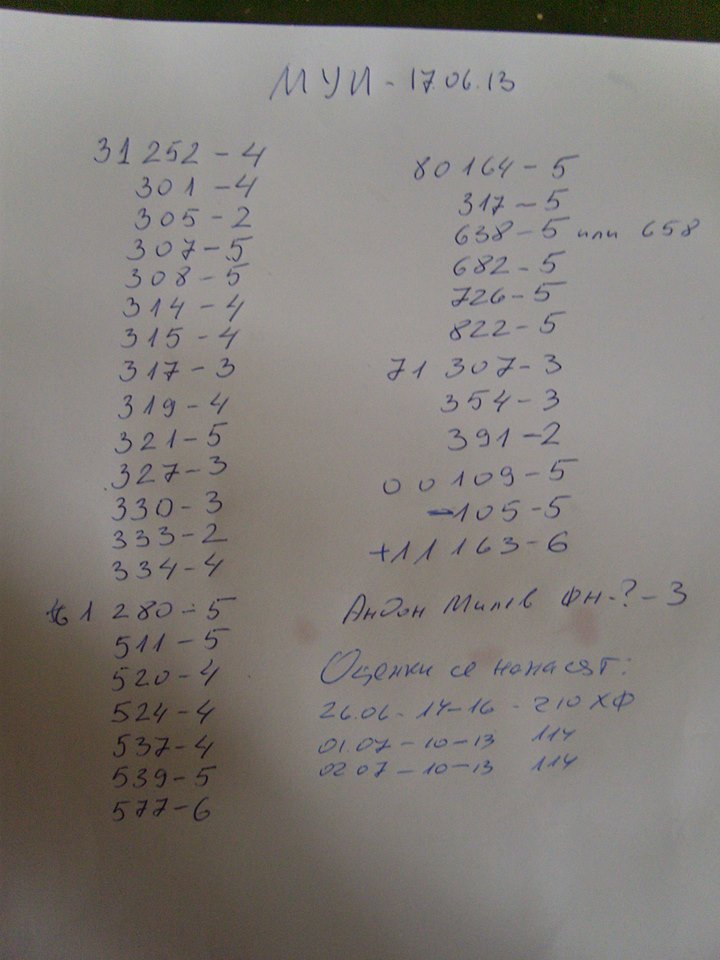 МУИ - 17.06.13
31 252 - 4
301 - 4
305 - 2
307 - 5
308 - 5
314 - 4
315 - 4
317 - 3
319 - 4
321 - 5
327 - 3
330 - 3
333 - 2
334 - 4
61 280 - 5
511 - 5
520 - 4
524 - 4
537 - 4
539 - 5
577 - 6
80164 - 5
317 - 5
638 - 5 или 658
682 - 5
726 - 5
822 - 5
71 307 - 3
354 - 3
391 - 2
00109 - 5
105 - 5
+11163 - 6
Андон Милев ФН-? - 3
Оценки се нанасят:
26.06 - 14-16 - 210 ХФ
01.07 - 10-13 114
02.07 - 10-13 114